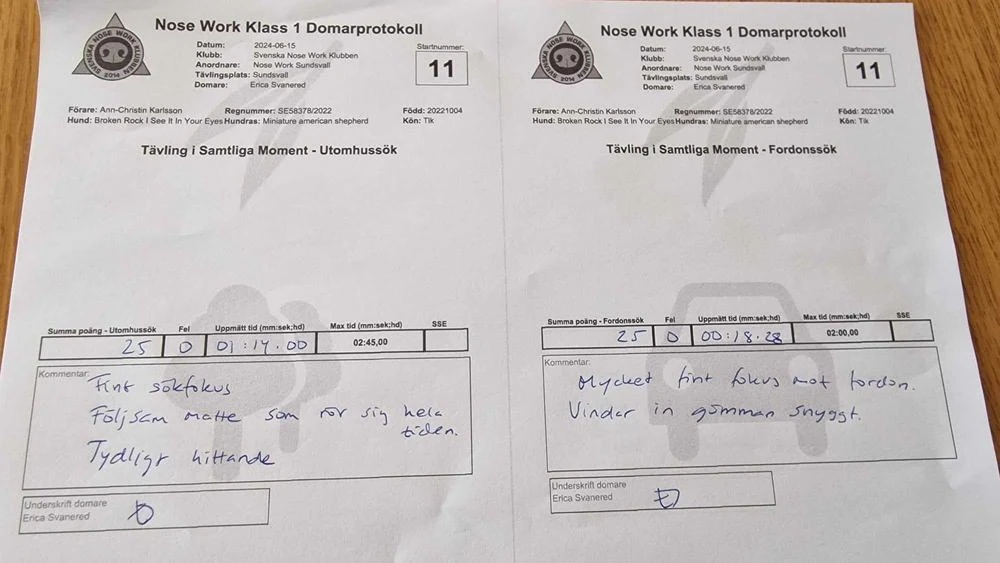 SVENSKA NOSE WORK KLUBBEN
2014
Nose Work Klass 1 Domarprotokoll
Datum: 2024-06-15
Klubb: Svenska Nose Work Klubben
Anordnare: Nose Work Sundsvall
Tävlingsplats: Sundsvall
Domare: Erica Svanered
Startnummer:
11
Förare: Ann-Christin Karlsson Regnummer: SE58378/2022 Född: 20221004
Hund: Broken Rock I See It In Your Eyes Hundras: Miniature american shepherd Kön: Tik
Tävling i Samtliga Moment - Utomhussök
Summa poäng - Utomhussök Fel Uppmätt tid (mm:sek;hd) Max tid (mm:sek;hd) SSE
25 0 01:14.00 02:45,00
Kommentar:
Fint sökfokus
Följsam matte som rör sig hela
tiden.
Tydligt hittande
Underskrift domare
Erica Svanered
SVENSKA NOSE WORK KLUBBEN
2014
Nose Work Klass 1 Domarprotokoll
Datum: 2024-06-15
Klubb: Svenska Nose Work Klubben
Anordnare: Nose Work Sundsvall
Tävlingsplats: Sundsvall
Domare: Erica Svanered
Startnummer:
11
Förare: Ann-Christin Karlsson Regnummer: SE58378/2022 Född: 20221004
Hund: Broken Rock I See It In Your Eyes Hundras: Miniature american shepherd Kön: Tik
Tävling i Samtliga Moment - Fordonssök
Summa poäng - Fordonssök Fel Uppmätt tid (mm:sek;hd) Max tid (mm:sek;hd) SSE
25 0 00:18.28 02:00,00
Kommentar:
Mycket fint fokus mot fordon.
Vindar in gömman snyggt.
Underskrift domare
Erica Svanered